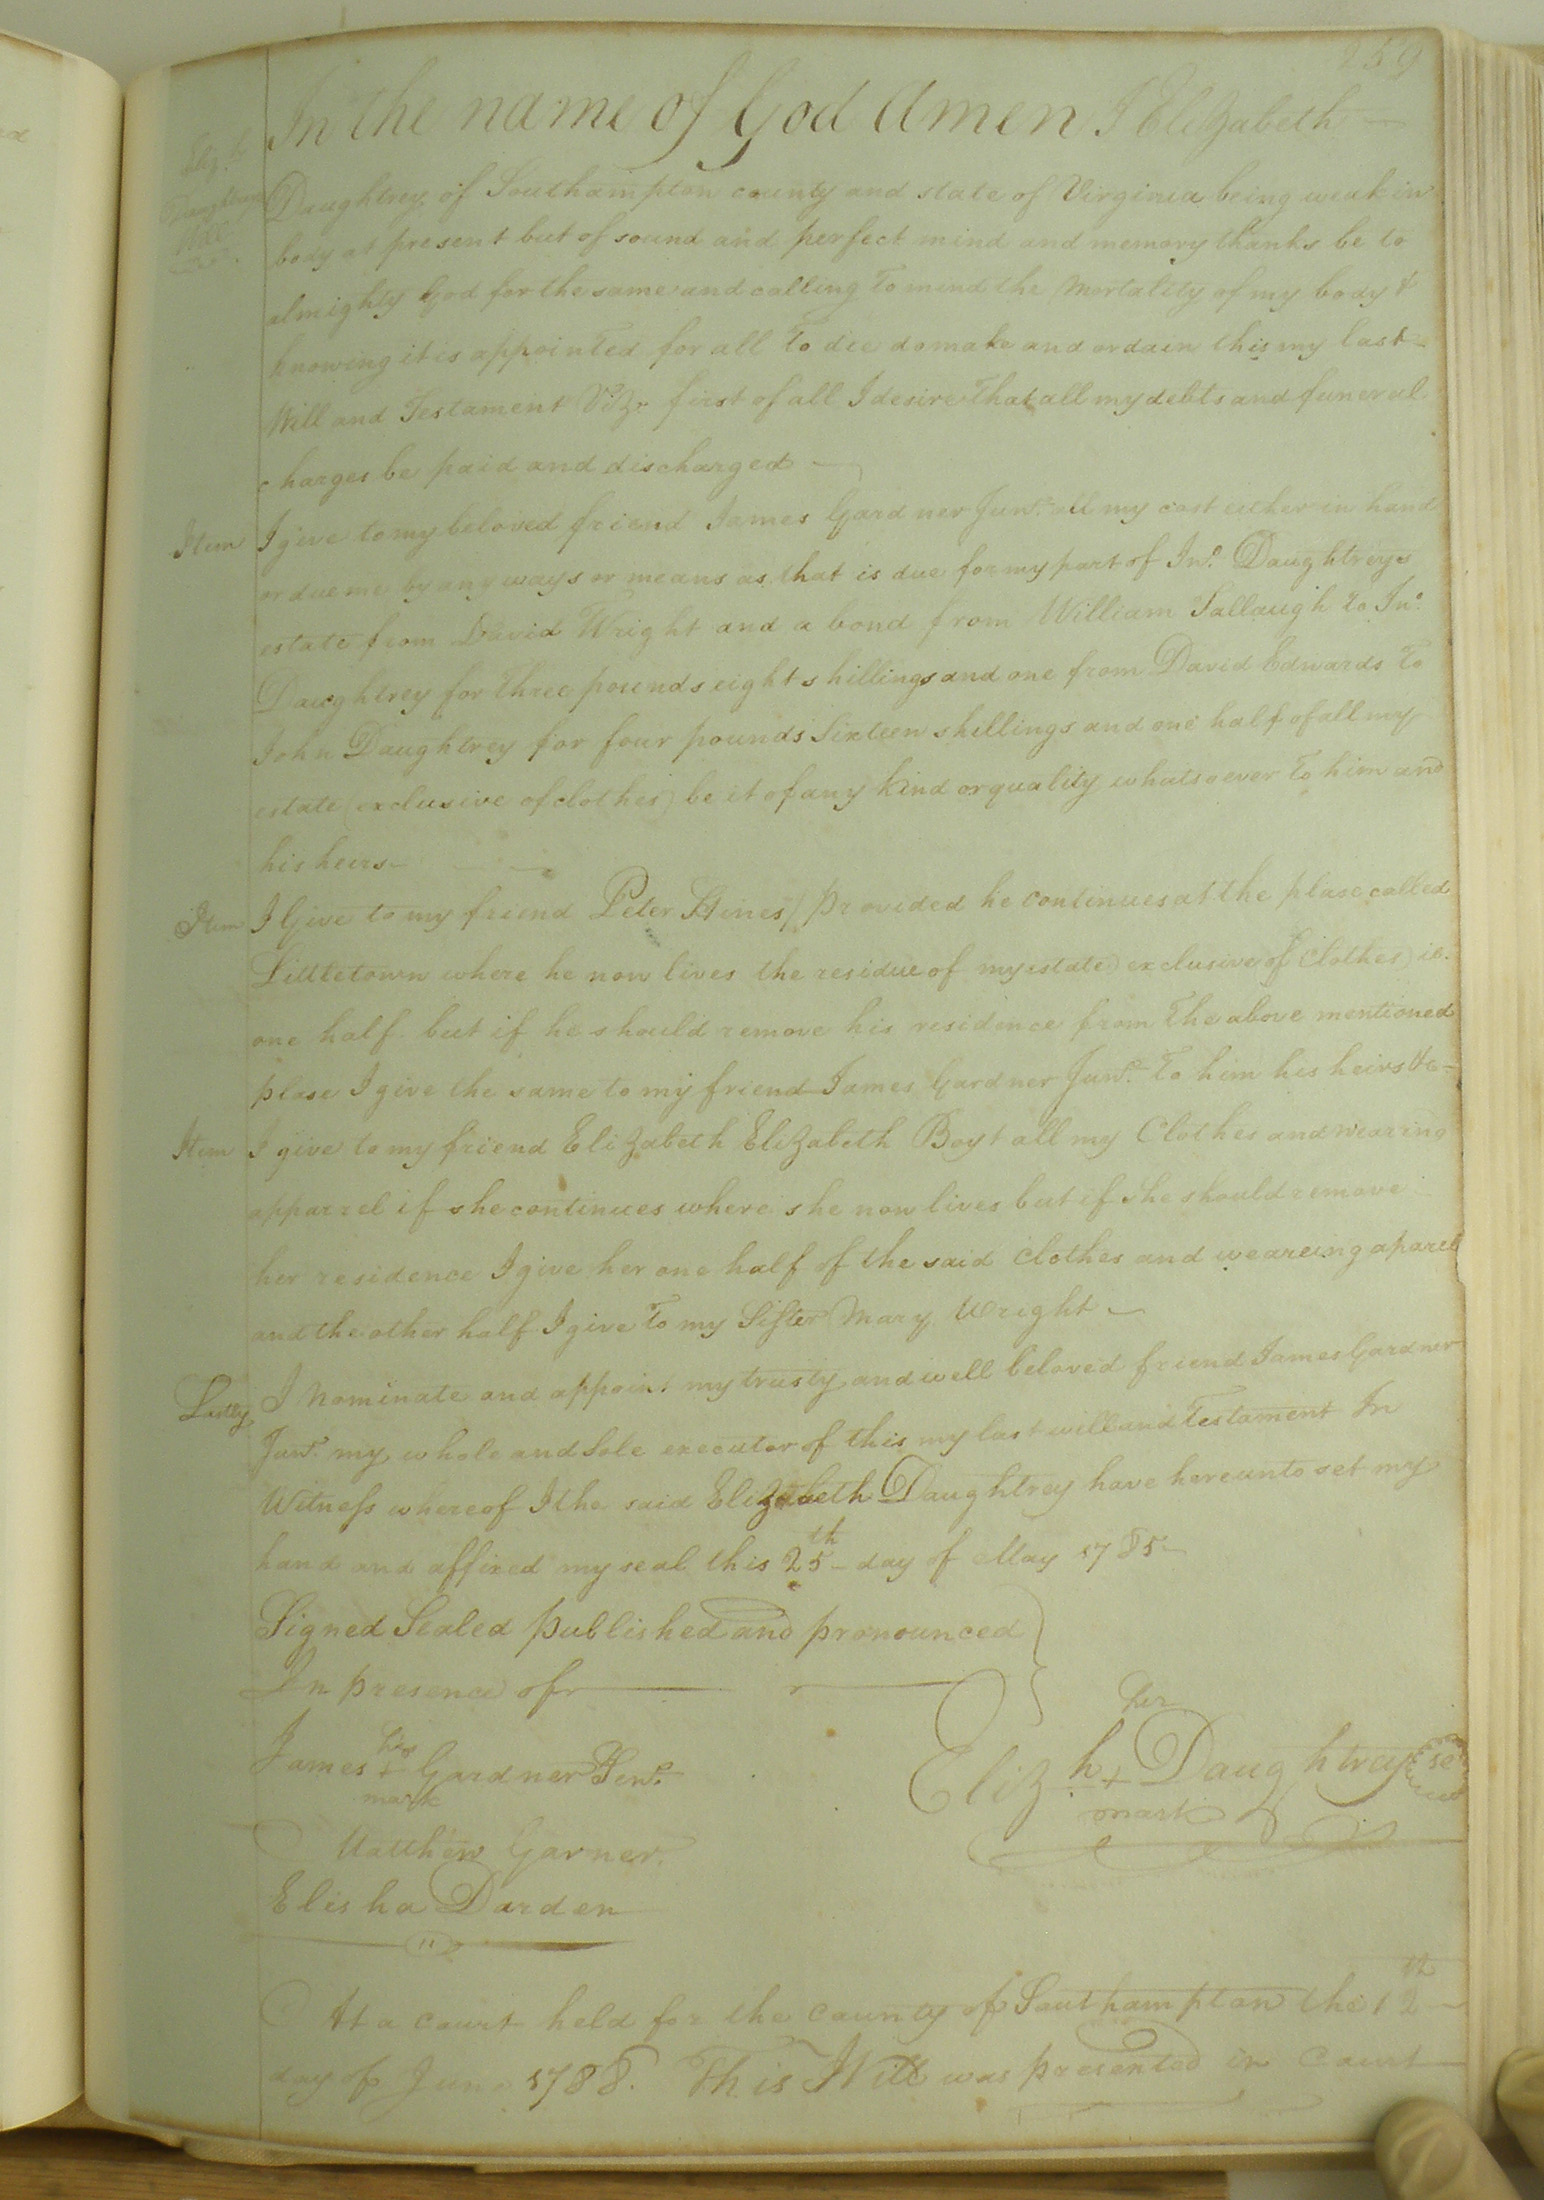 259
In the name of God Amen I Elizabeth
Eliz.h
Daughtrey
Will
Daughtrey of Southampton county and state of Virginia being weak in
body at present but of sound and perfect mind and memory thanks be to
almighty God for the same and calling to mind the Mortality of my body &
knowing it is appointed for all to die do make and ordain this my last
Will and Testament Viz. first of all I desire that all my debts and funeral
charges be paid and discharged
Item I give to my beloved friend James Gardner Junr. all my cast either in hand
or due me by any ways or means as that is due for my part of Jno. Daughtreys
estate from David Wright and a bond from William Sallaugh to Jno.
Daughtrey for three pounds eight shillings and one from David Edwards to
John Daughtrey for four pounds Sixteen shillings and one half of all my
estate (exclusive of clothes) be it of any kind or quality whatsoever to him and
his heirs
Item I Give to my friend Peter Stines) provided he continues at the plase called
Littletown where he now lives the residue of my estate) exclusive of Clothes) ie.
one half but if he should remove his residence from the above mentioned
plase I give the same to my friend James Gardner Junr. to him his heirs &c
Item I give to my friend Elizabeth Elizabeth Boyt all my Clothes and wearing
apparrel if she continues where she now lives but if she should remove
her residence I give her one half of the said clothes and weareing aparel
and the other half I give to my Sister Mary Wright
Lastly I Nominate and appoint my trusty and well beloved friend James Gardner
Junr. my whole and Sole executor of this my last will and Testament In
Witness whereof I the said Elizabeth Daughtrey have hereunto set my
hand and affixed my seal this 25th day of May 1785
Signed Sealed published and pronounced
In presence of
her
James his + Gardner Senr.
mark
Elizh + Daughtrey se
mark
Matthew Garner.
Elisha Darden
At a court held for the county of Southampton the 12th
day of June 1788. This Will was presented in Court